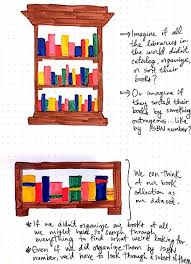 → Imagine if all
the libraries in
the world didn't
catalog, organize,
or sort their
books?
→ Or imagine if
they sorted their
books by something
outrageous... like
by ISBN number?
→ We can think
of our book
collection as
our dataset.
* If we didn't organize our books at all,
we might have to comb through
everything to find what we're looking for
* Even if we did organize them by ISBN
number, we'd have to look through a subset of them